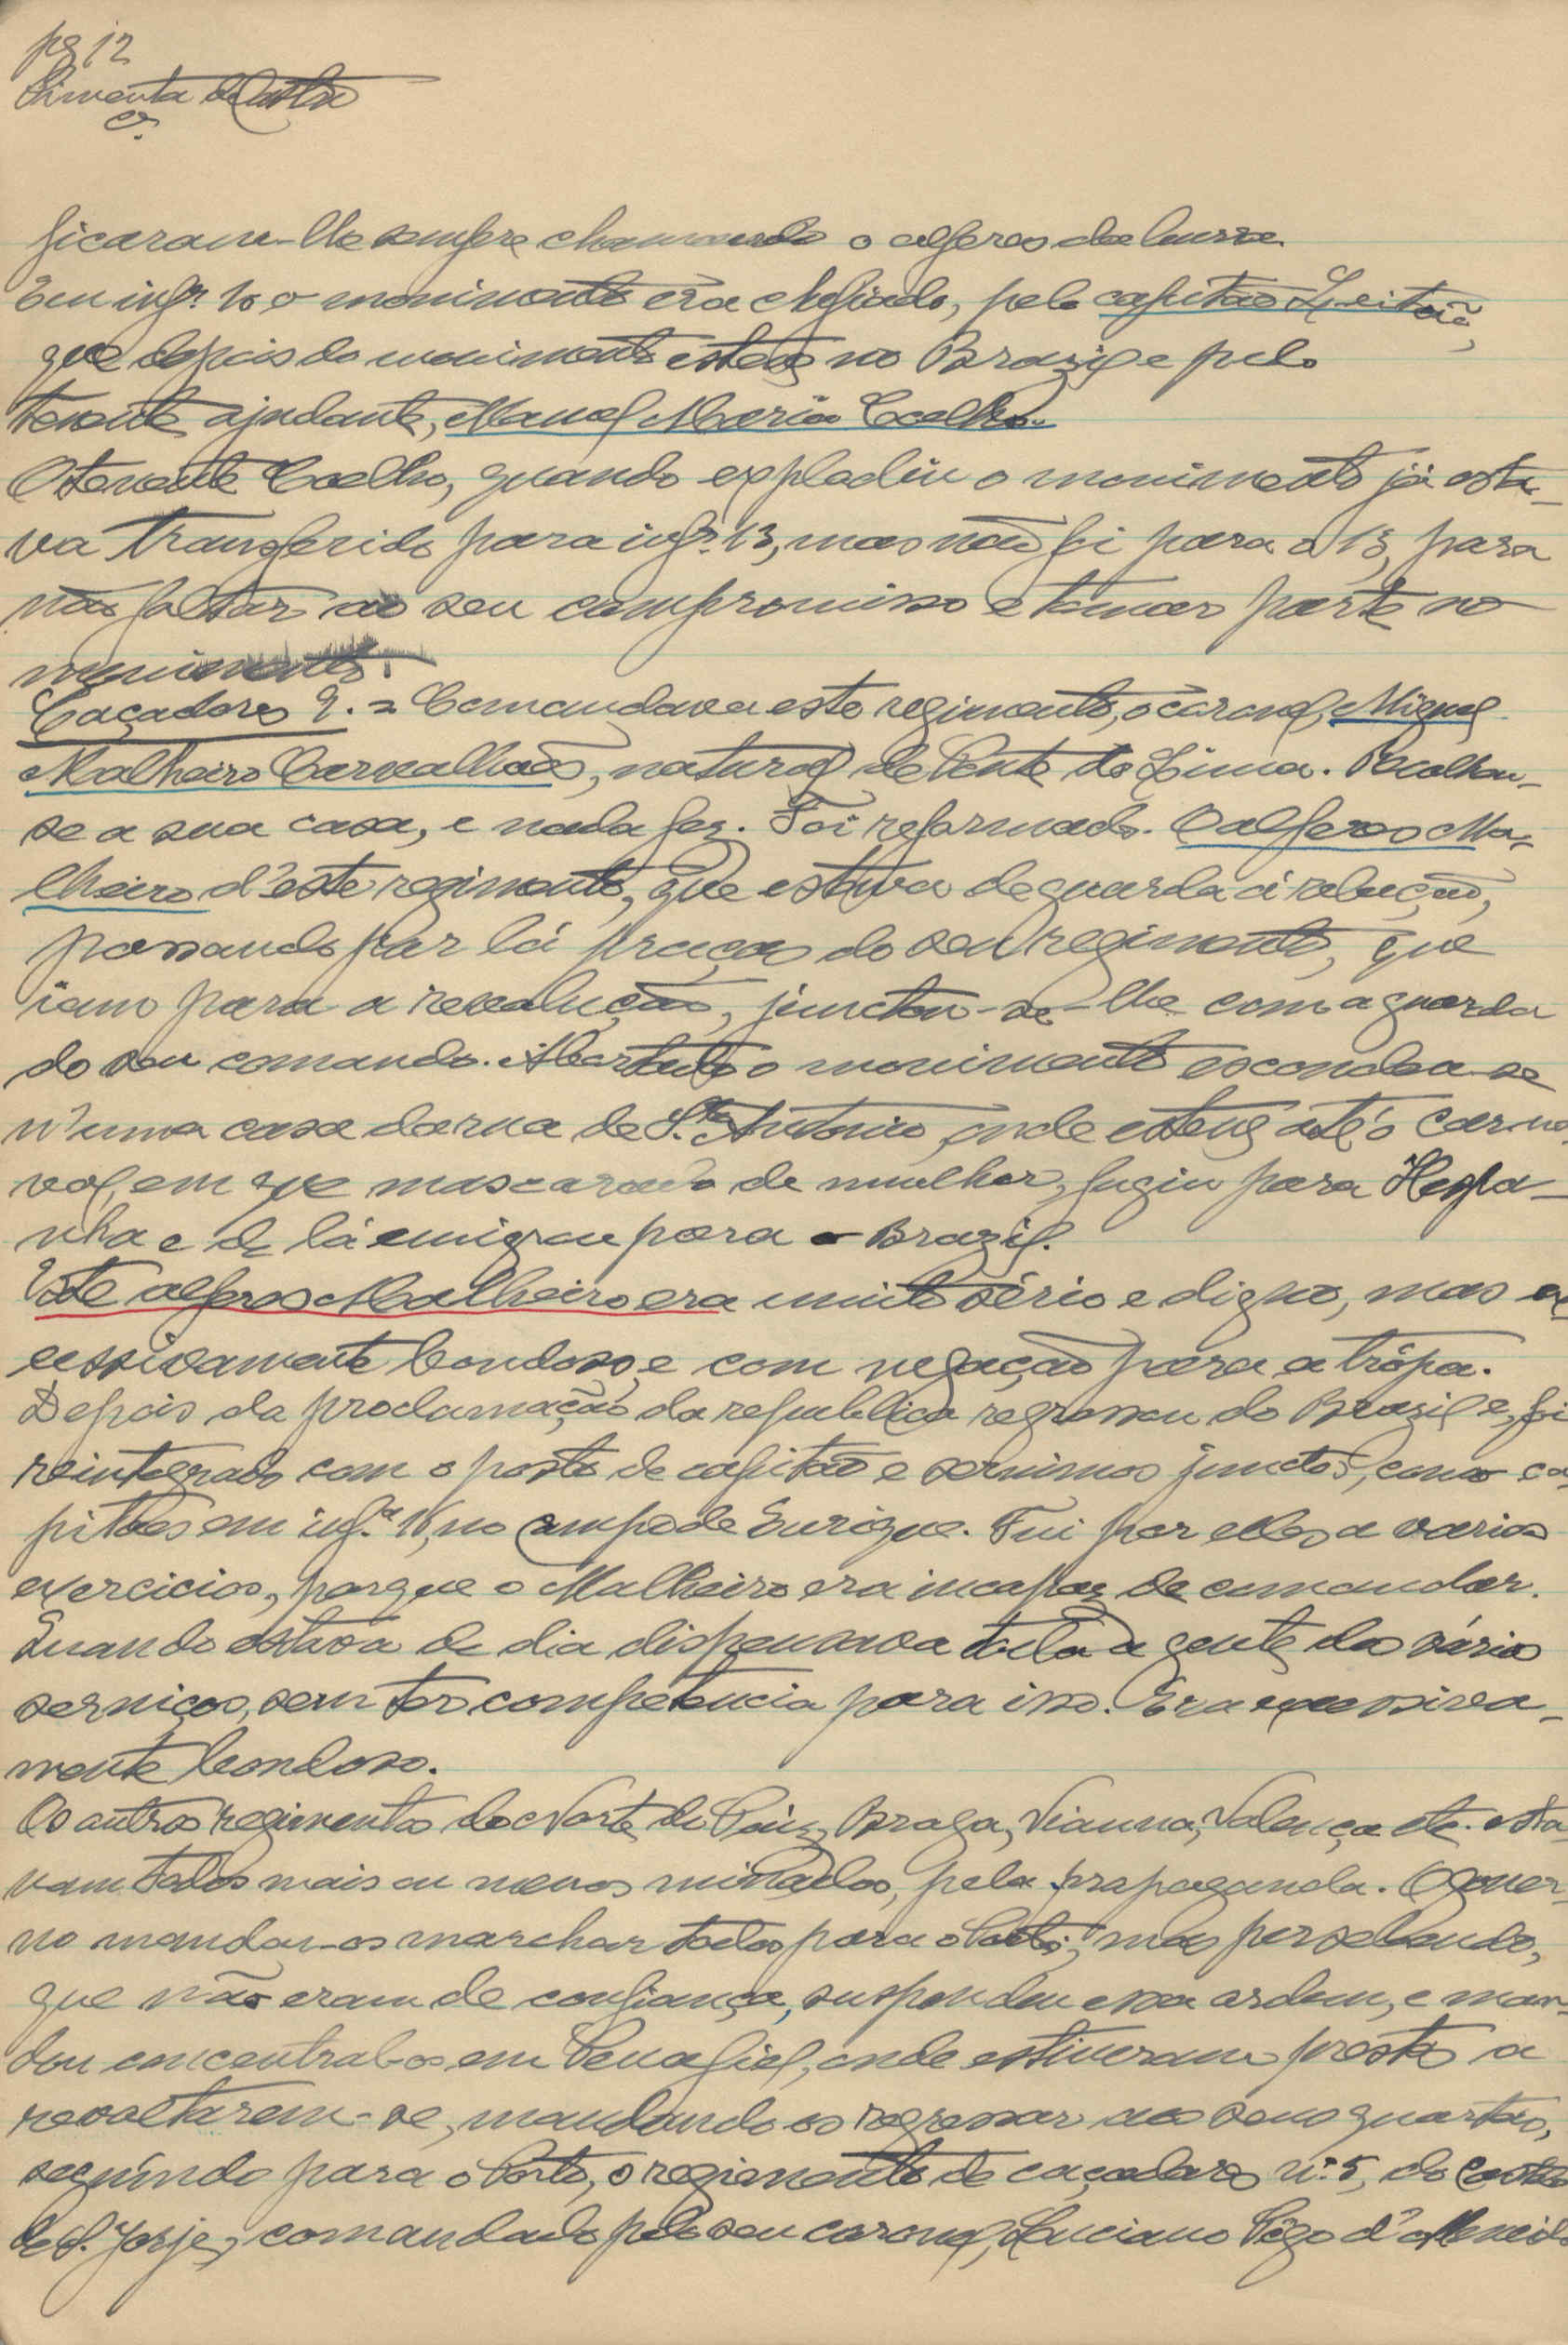 pg 12
Pimenta de Castro
ficaram-lhe sempre chamando o alferes da burra
Em infª. 10 o movimento éra chefiado, pelo capitão Leitão,
que depois do movimento esteve no Brazil e pelo
tenente ajudante, Manuel Maria Coelho.
O tenente Coelho, quando explodiu o movimento já esta-
va transferido para infª. 13, mas não foi para o 13, para
não faltar ao seu compromisso e tomar parte no
movimento.
Caçadores 9. = Comandava este regimento, o coronel, Miguel
Malheiro Carvalhaes, natural de Ponte do Lima. Recolheu-
se a sua casa, e nada fez. Foi reformado. O alferes Ma-
lheiro d'este regimento, que estava de guarda á relação,
passando por lá praças do seu regimento, que
iam para a revolução, junctou-se-lhe com a guarda
do seu comando. Abortado o movimento escondeu-se
n'uma casa da rua de Stº. Antonio, onde esteve até ó carna-
val, em que mascarado de mulher, fugiu para Hespa-
nha e de lá emigrou para o Brazil.
Este alferes Malheiro era muito sério e digno, mas ex-
cessivamente bondoso, e com negação para a trópa.
Depois da proclamação da republica regressou do Brazil e, foi
reintegrado com o posto de capitão e servimos junctos, como ca-
pitães em infª. 16, no campo de Ourique. Fui por elles a varios
exercicios, porque o Malheiro era incapaz de comandar.
Quando estava de dia dispensava toda a gente dos vários
serviços, sem ter competencia para isso. Era excessiva-
mente bondoso.
Os outros regimentos do Norte do Paiz, Braga, Vianna, Valença etc. esta
vam todos mais ou menos minados, pela propaganda. O gover-
no mandou-os marchar todos para o Porto; mas persebendo,
que não eram de confiança, suspendeu essa ordem, e man-
dou concentral-os em Penafiel, onde estiveram prestes a
revoltarem-se, mandando-os regressar aos seus quarteis,
seguíndo para o Porto, o regimento de caçadores nº. 5, do Castelo
de S. Jorje, comandado pelo seu coronel, Luciano Pégo d'Almeida